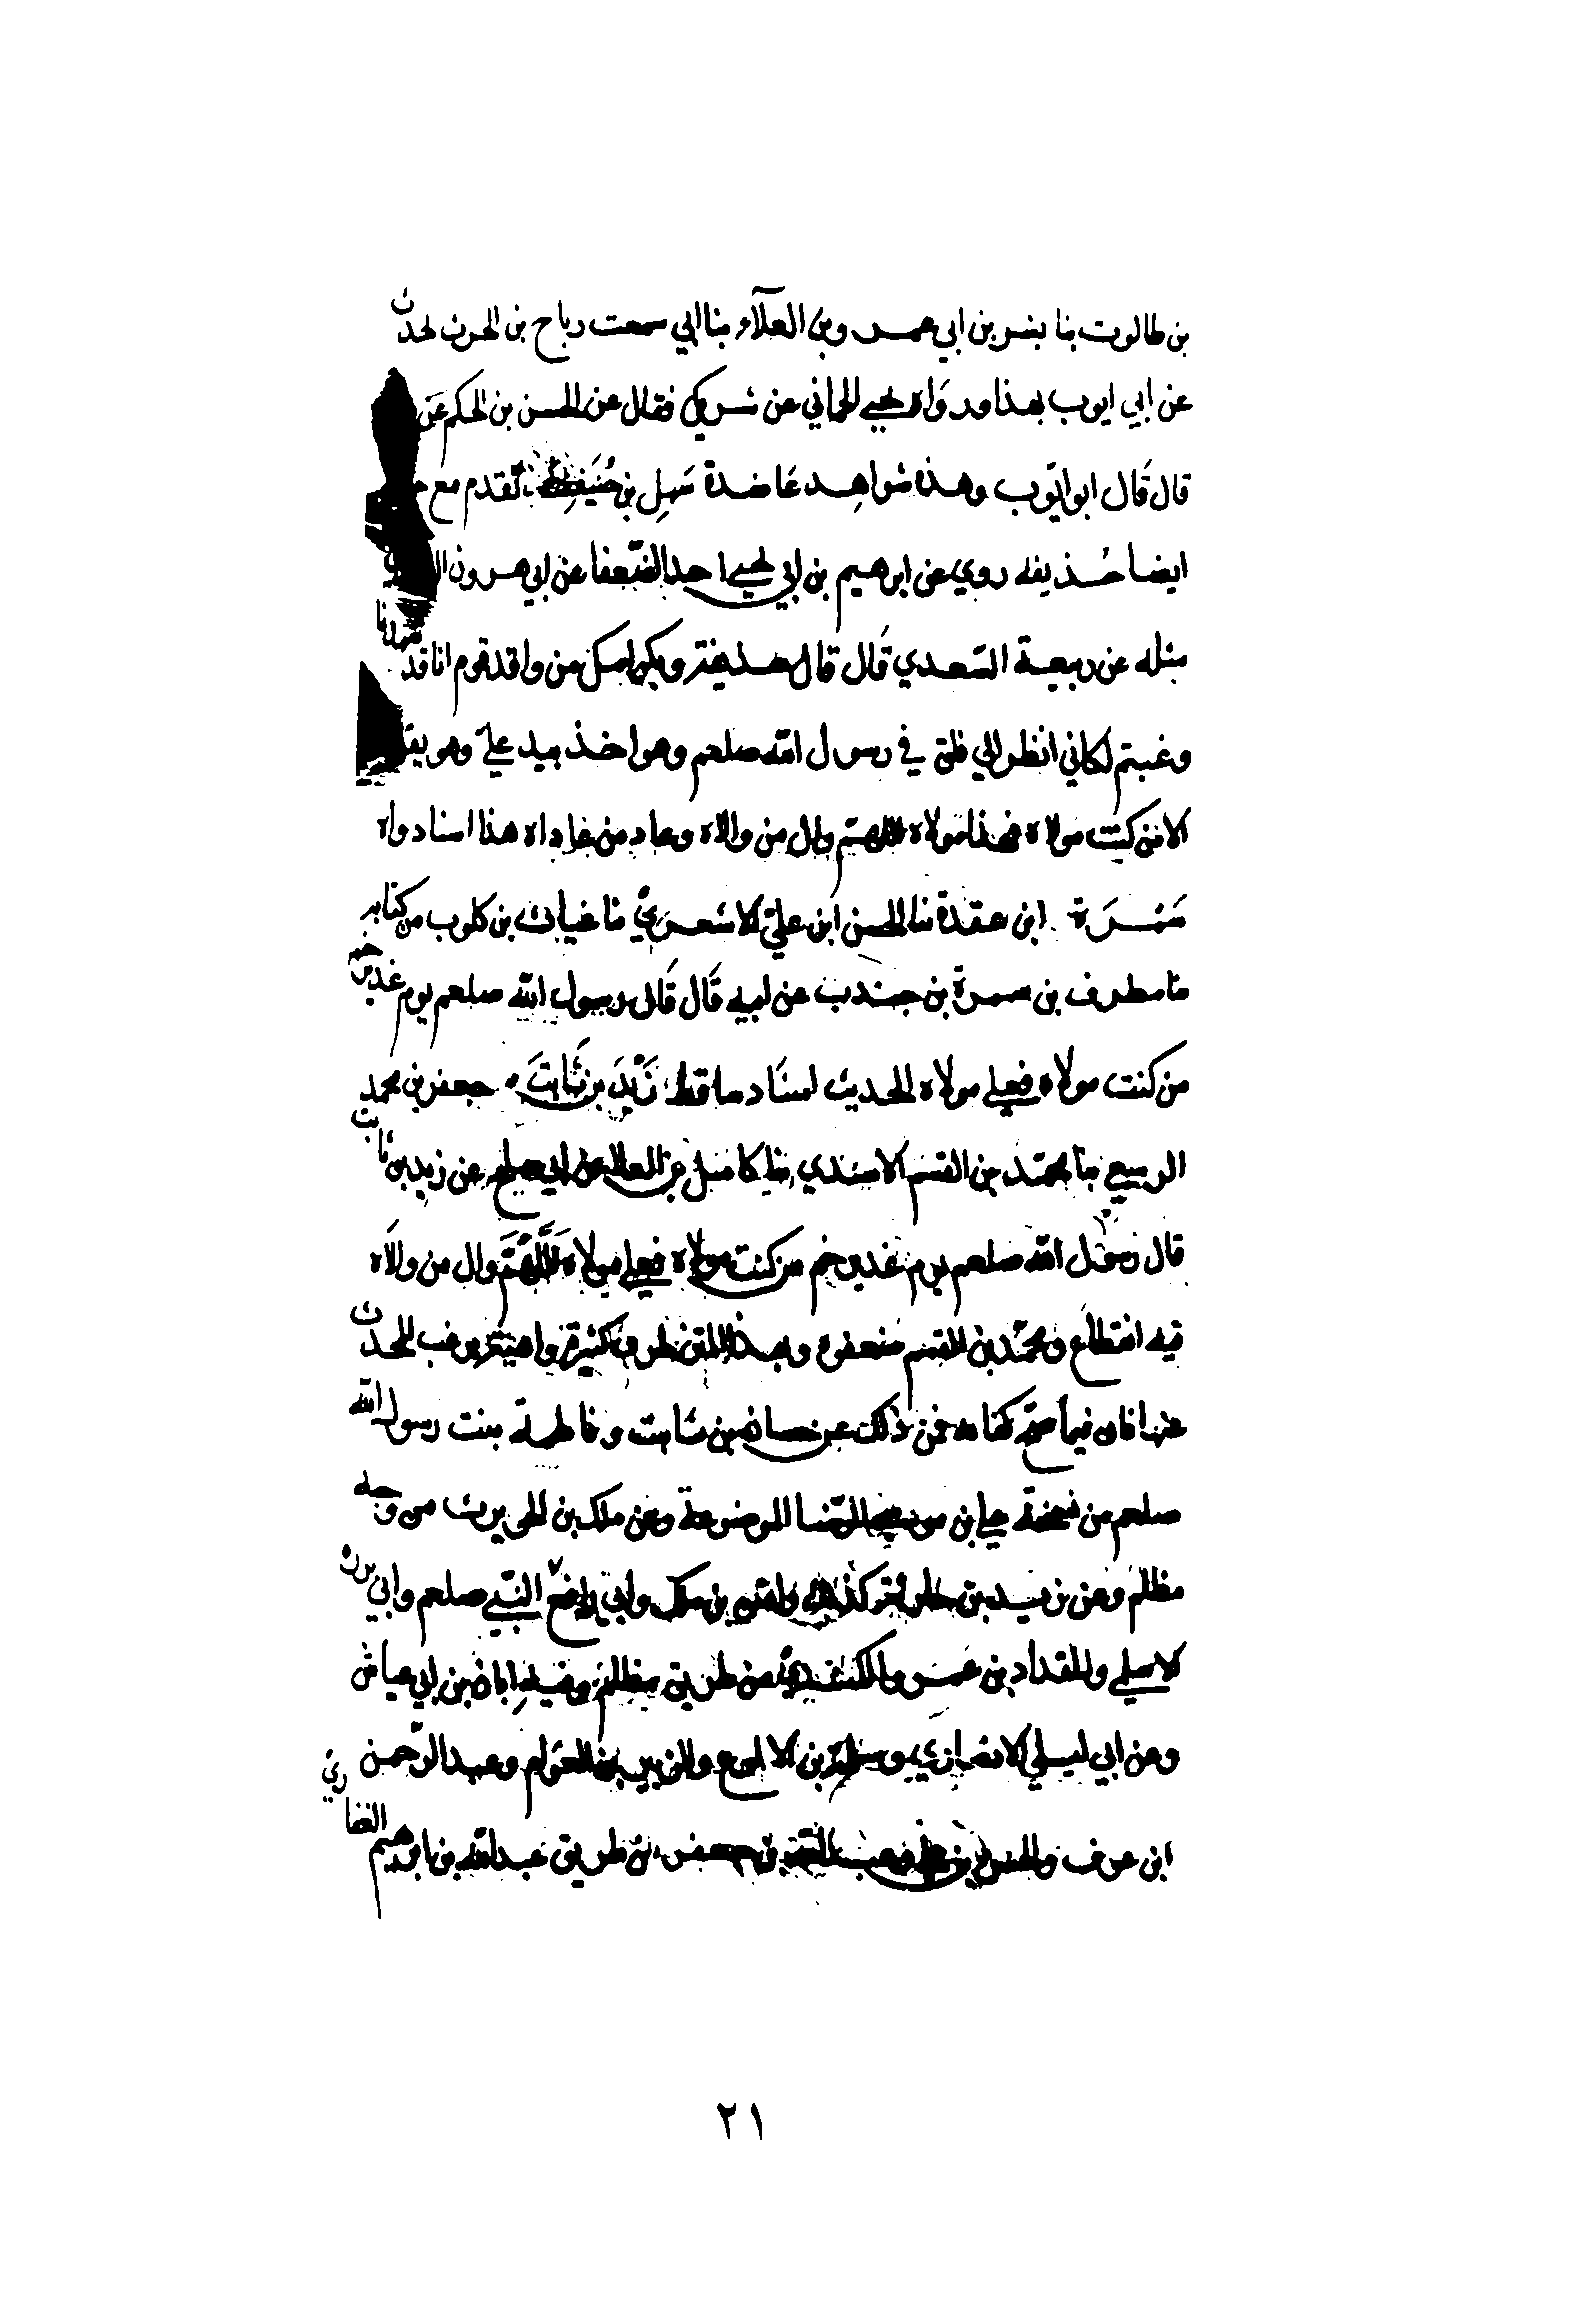 بن طالوت بنا بشر بن ابي عمرو بن العلآء بنا ابي سمعت رباح بن الحرث يحدث
عن ابي ايوب بهذا ورواه يحيى الحماني عن شريك فقال عن الحسن بن الحكم عن
قال قال ابو ايوب وهذه شواهد عاضدة سهل بن حنيف تقدم مع
ايضا حذيفه روي عن ابرهيم بن ابي يحيى احد الضعفا عن ابي هرون
مثله عن ربيعة السعدي قال قال من واقد قوم انا قد شهدنا
وغبتم لكاني انظر الي في رسول الله صلعم وهو اخذ بيد علي وهو
الا من كنت مولاه فهذا مولاه اللهم وال من والاه وعاد من عاداه هذا اسناد واه
سمرة ابن عقدة نا الحسن ابن علي الاشعري نا غياث بن كلوب من كتابه
نا مطرف بن سمرة بن جندب عن ابيه قال قال رسول الله صلعم يوم غدير خم
من كنت مولاه فعلي مولاه الحديث اسناد ساقط زيد بن ثابت جعفر بن محمد
الربيعي بنا محمد بن القسم الاسدي بنا كامل ابي العلا عن ابي صالح عن زيد بن ثابت
قال رسول الله صلعم يوم غدير خم من كنت مولاه فعلي مولاه اللهم وال من والاه
فيه انقطاع ومحمد بن القسم ضعفوه وبهذا المتن طرق كثيرة واهية يرغب المحدث
عنها فان فيما صح كفاه فمن ذلك عن حسان بن ثابت وفاطمة بنت رسول الله
صلعم من نسخة علي بن موسى الرضا الموضوعة وعن ملك بن الحويرث من وجه
مظلم وعن زيد بن حارثة كذلك وانس بن ملك وابي رافع النبي صلعم وابي برزة
الاسلمي والمقداد بن عمرو الكندي من طريق مظلم وفيه ابان بن ابي عياش
وعن ابي ليلي الانصاري وسلمة بن الاكوع والزبير بن العوام وعبد الرحمن
ابن عوف والحسن بن علي وعبد الله بن جعفر من طريق عبد الله بن ابرهيم الغفاري
٢١